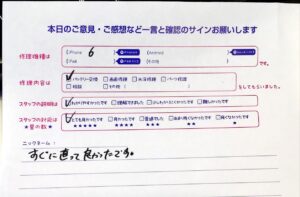 本日のご意見・ご感想など一言と確認のサインお願いします
修理機種は
iPhone 6
Android
iPad
その他
です。
修理内容は
✓バッテリー交換 □画面修理 □水没修理 □パーツ修理
□相談 □その他
をしてもらいました。
スタッフの説明は
✓わかりやすかったです □理解できました □少しわかりにくかったです □難しかったです
スタッフの対応は
✓とても良かったです □良かったです □普通でした □あまり良くなかったです □良くなかったです
★星の数★
★★★★★ ★★★★ ★★★ ★★ ★
ニックネーム:
すぐに直って良かったです。